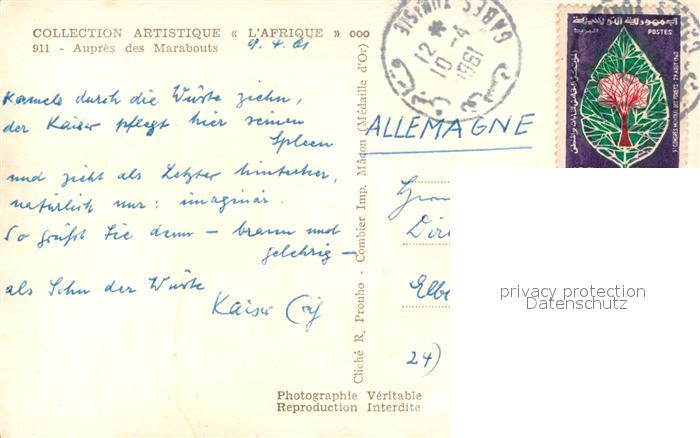 COLLECTION ARTISTIQUE « L'AFRIQUE » ooo
911 - Auprès des Marabouts
9.4.61
Kamele durch die Wüste ziehn,
der Kaiser pflegt hier seinen
Spleen
und zieht als Letzter hinterher,
natürlich nur: imaginär.
So grüßt Sie denn – braun und
gelehrig –
als Sohn der Wüste
Kaiser
Cliché R. Prouho - Combier Imp. Mâcon (Médaille d'Or)
Photographie Véritable
Reproduction Interdite
GABES TUNISIE
12 *
10 -4
1961
قابس
POSTES
ALLEMAGNE
Dir
Elbe
24)
privacy protection
Datenschutz